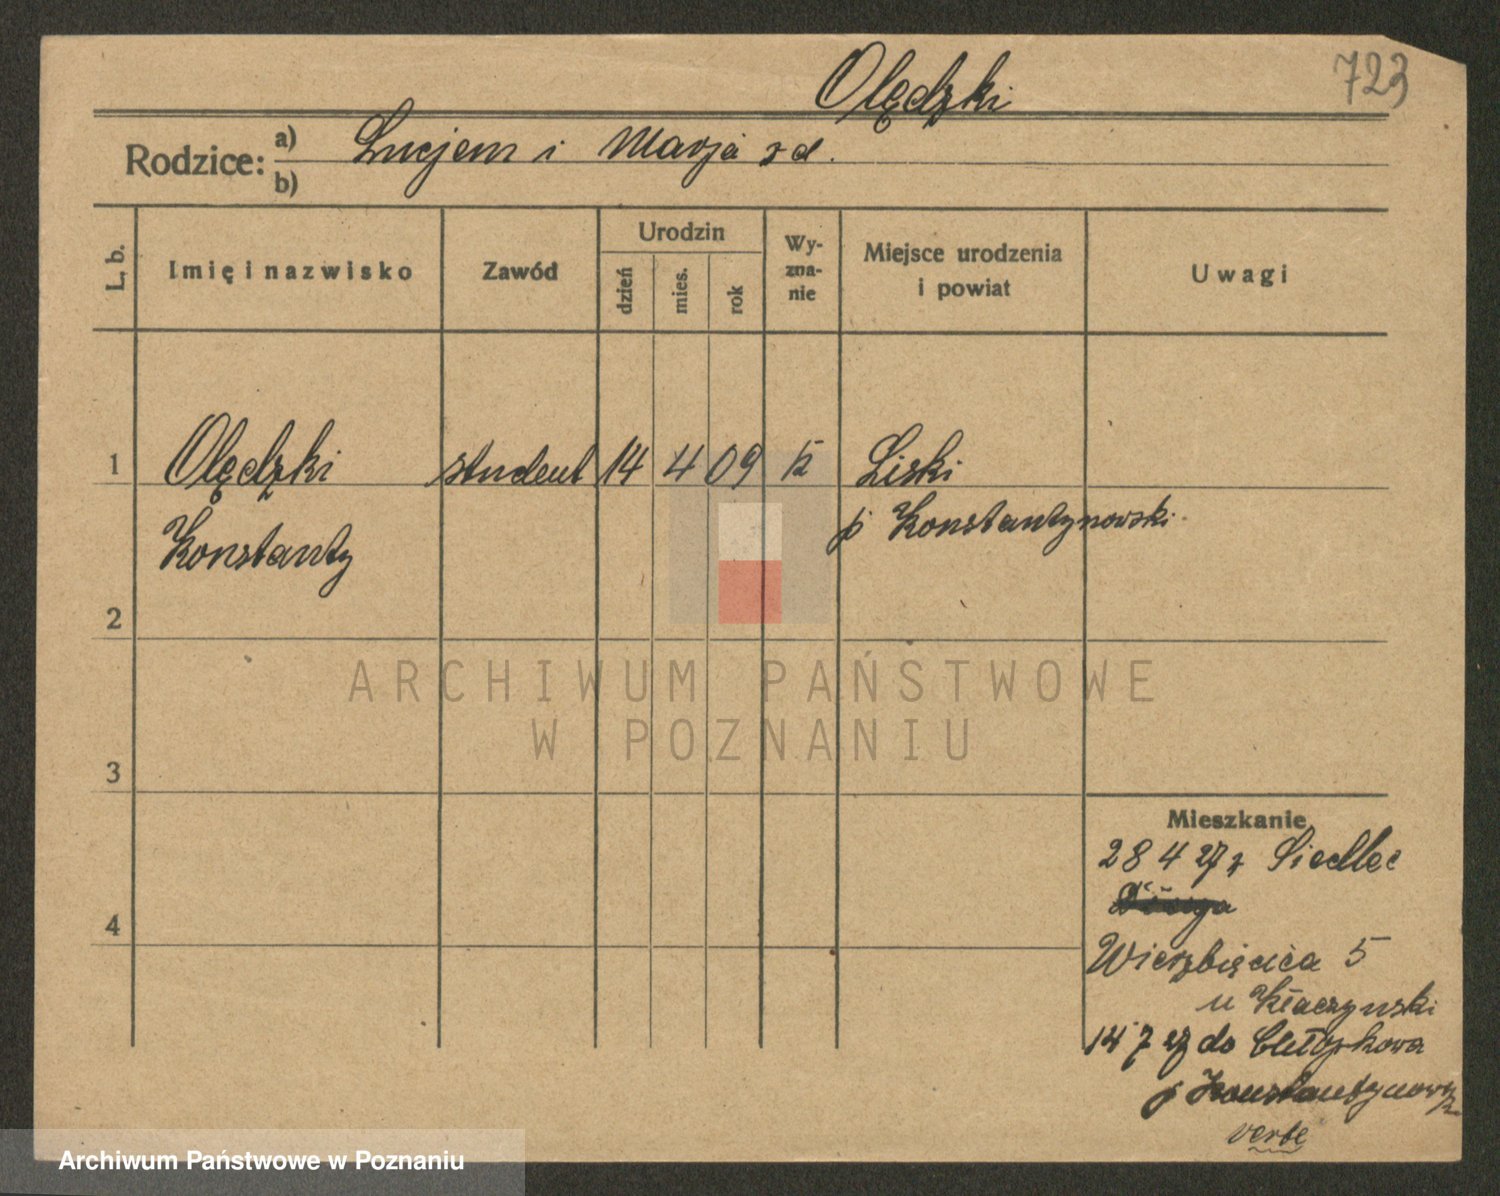 Olędzki
723
Rodzice: a) Lucjem i Marja z d.
b)
L. b.
Imię i nazwisko
Zawód
Urodzin
dzień
mies.
rok
Wy-
zna-
nie
Miejsce urodzenia
i powiat
Uwagi
1 Olędzki student 14 4 09 Liski
Konstanty
p Konstantynowski
2
3
4
ARCHIWUM PAŃSTWOWE
W POZNANIU
Mieszkanie
28 4 27 z Siedlec
Wierzbięcica 5
u Kłaczynski
14 7 27 do
p Konstantynow
Archiwum Państwowe w Poznaniu